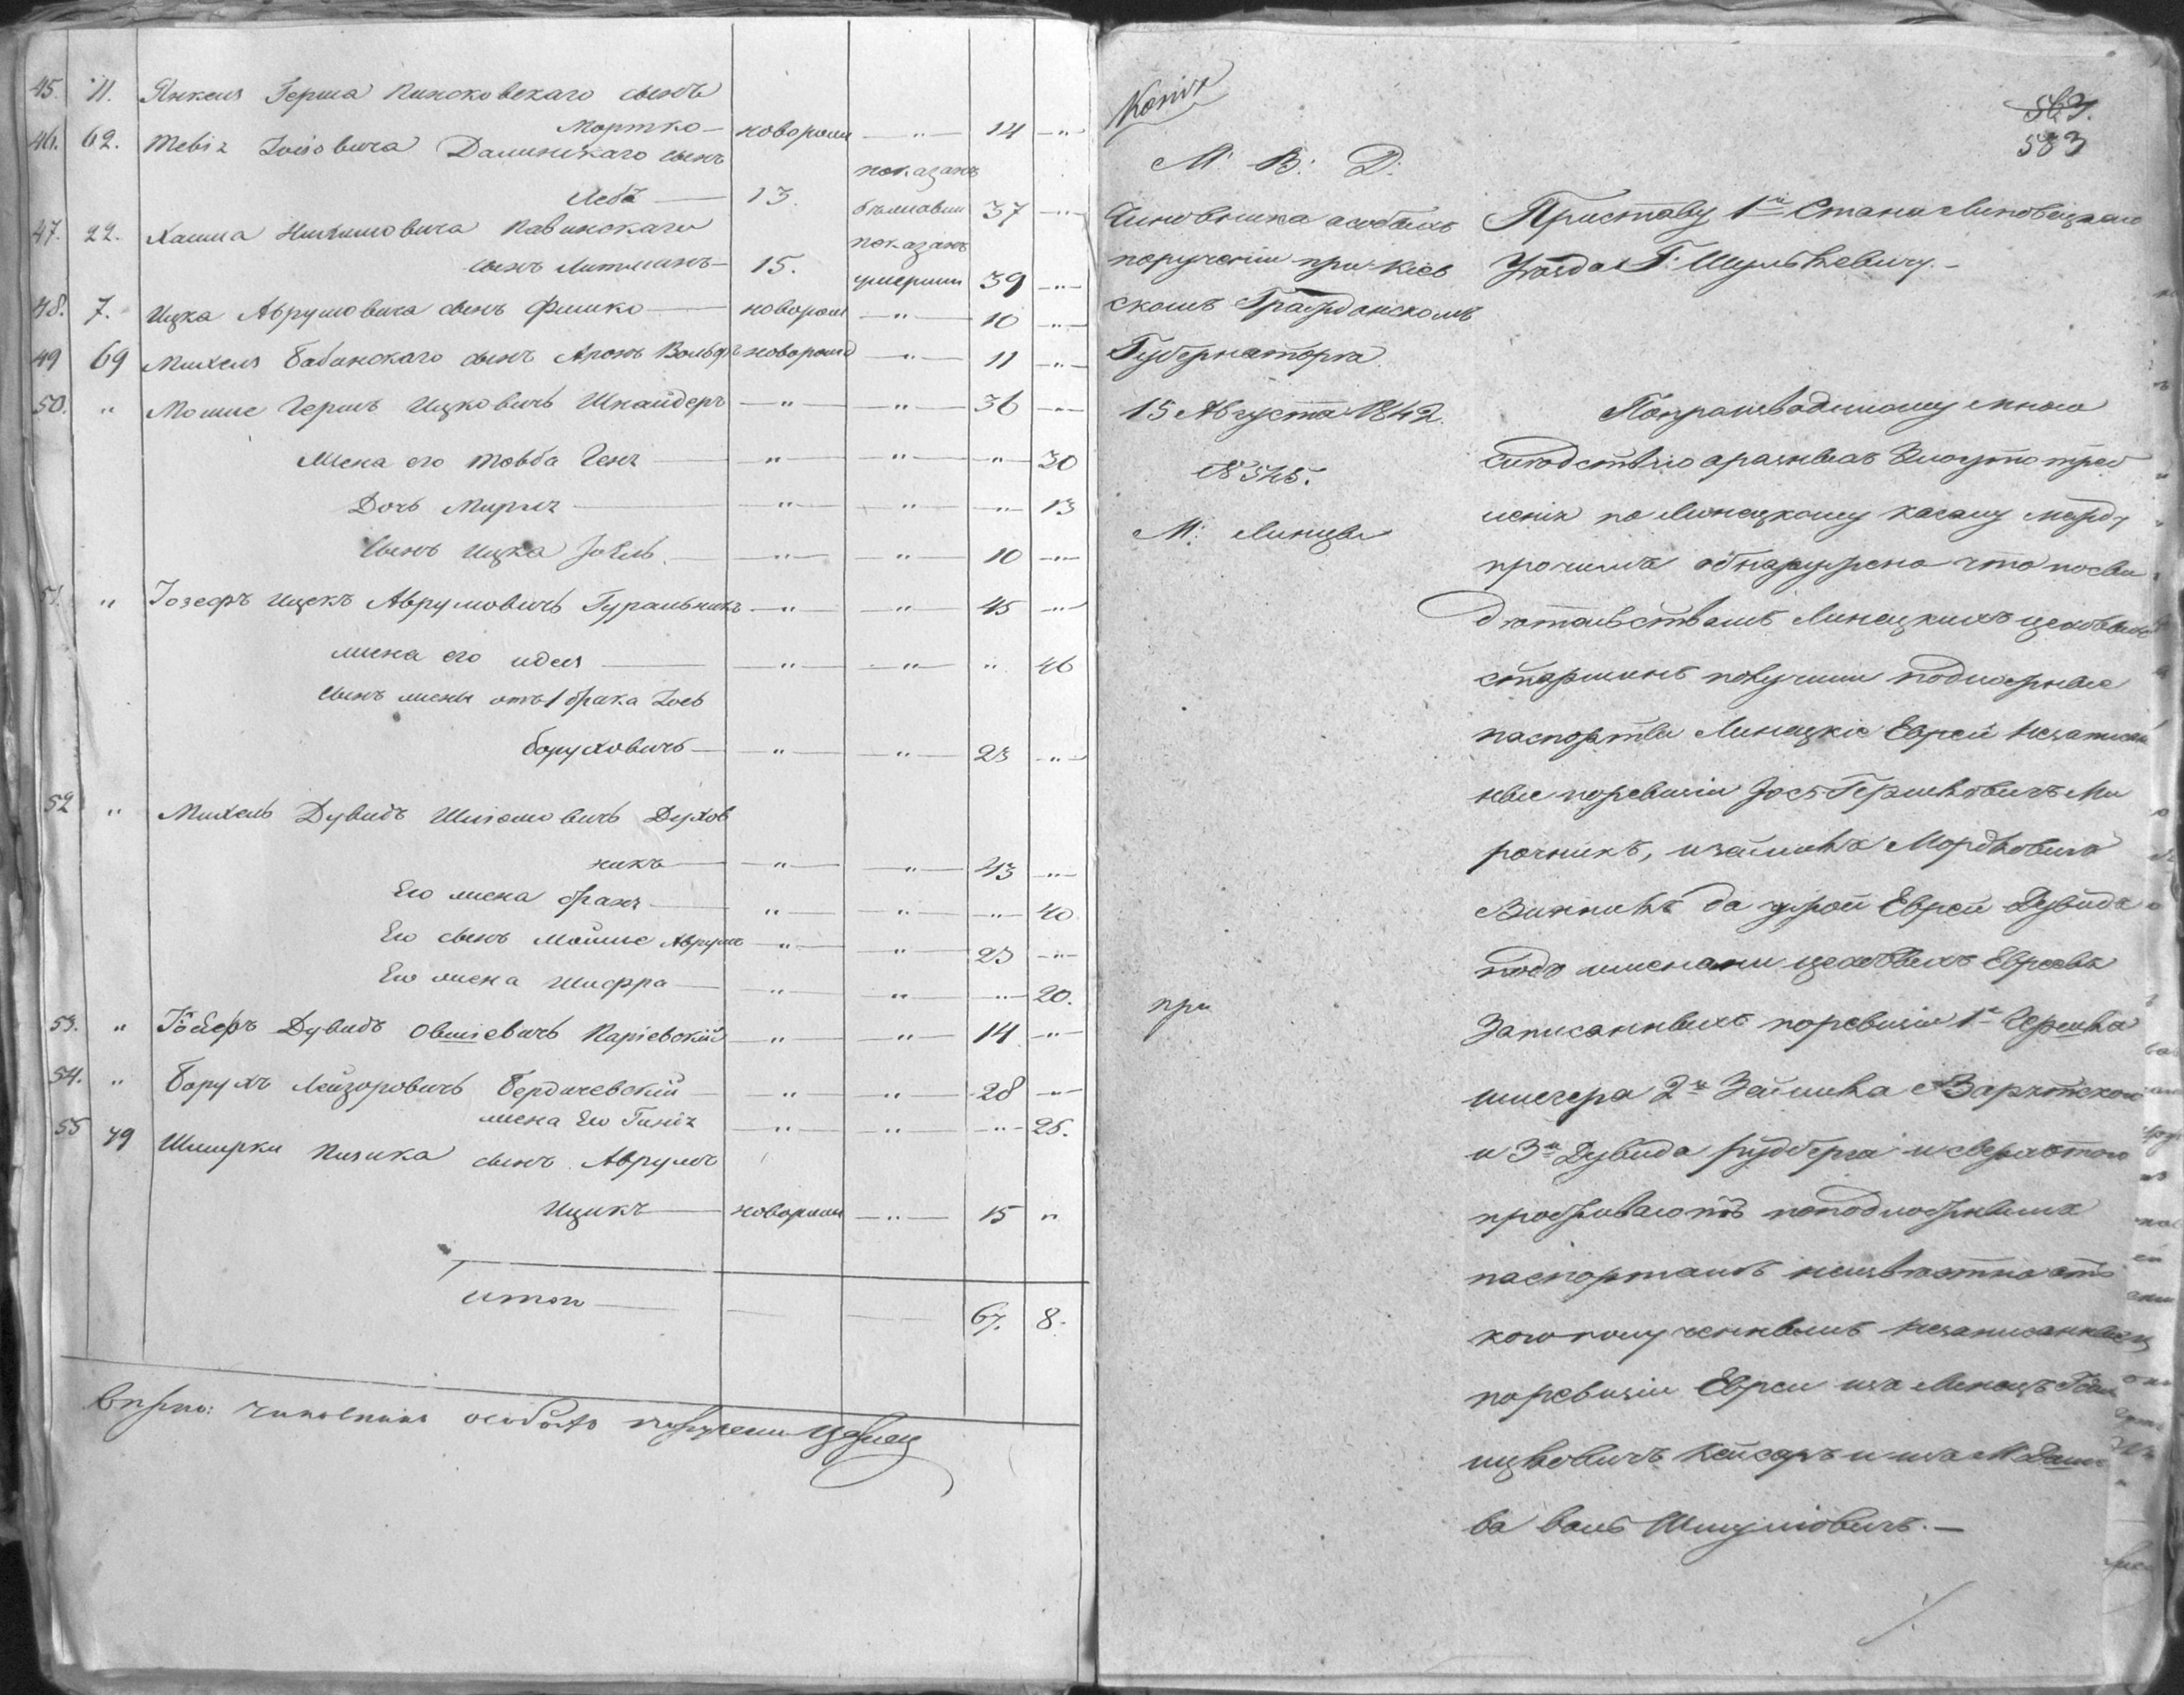 45. 11. Янкеля Герша Пинсковскаго сынъ
Мортко — новорожд — " — 14 — "
46. 62. Тевія Іосіовича Далинскаго сынъ показанъ
Леба — 13. бѣжавши 37 — "
47. 22. Хаима Нихимовича Равинскаго показанъ
сынъ Литманъ — 15. умершим 39 — "
48. 7. Ицка Аврумовича сынъ Фишко — новорож — " — 10 — "
49 69 Михеля Бабинскаго сынъ Аронъ Вольфъ новорожд — " — 11 — "
50. " Мошие Гершъ Ицковичъ Шнайдеръ — " — " — 36 — "
Жена его Товба Геня — " — " — " — 30
Дочь Мирля — " — " — " — 13
Сынъ Ицка Іоель — " — " — 10 — "
51. " Іозефъ Ицекъ Аврумовичъ Гуральникъ — " — " — 45 — "
жена его идея — " — " — " 46
Сынъ жены отъ 1 брака Іось
Боруховичъ — " — " — 23 — "
52 " Михель Дувидъ Шліомовичъ Духов
никъ — " — " — 43 — "
Его жена браня — " — " — " — 40
Его сынъ Мойше Аврумъ — " — " — 23 — "
Его жена Шифра — " — " — " — 20.
53. " Дувидъ Овшіевичъ Каріевскій — " — " — 14 — "
54. " Борухъ Лейзоровичъ Бердичевскій — " — " — 28 — "
жена Его Гинія — " — " — " — 25.
55 79 Шмирки Кизика сынъ Аврумъ
Ицикъ — новорожд — " — 15 "
Итого — 67. 8.
Вѣрно: чиновникъ особыхъ порученій
Копія
567.
583
М. В. Д.
Чиновника особыхъ
порученій при Кіев
скомъ Гражданскомъ
Губернаторѣ.
15 Августа 1842.
№ 545.
М. Линцы
Приставу 1го Стана Липовецкаго
Уѣзда Г. Шулькевичу. —
Попроизводимому мною
слѣдствію оразныхъ Злоупотреб
леніях по Линецкому кагалу между
прочимъ обнаружено что посви
дѣтельствамъ Линецкихъ цеховыхъ
старшинъ получили подложные
паспорты Линецкіе Евреи Незаписан
ные поревизіи Іось Гершковичъ Ми
рочникъ, изейликъ Мордковичъ
Винникъ да трой Еврей Дувидъ
подъ именами цеховыхъ Евреевъ
при
Записанныхъ поревизіи 1е Гершка
2е Зейлика
и 3е Дувида и сверхътого
проживаютъ поподложнымъ
паспортамъ неизвѣстно отъ
кого полученнымъ Незаписанные
поревизіи Евреи изъ
ицковичъ Кейсаръ и изъ М.
ва Шмулiовичъ. —